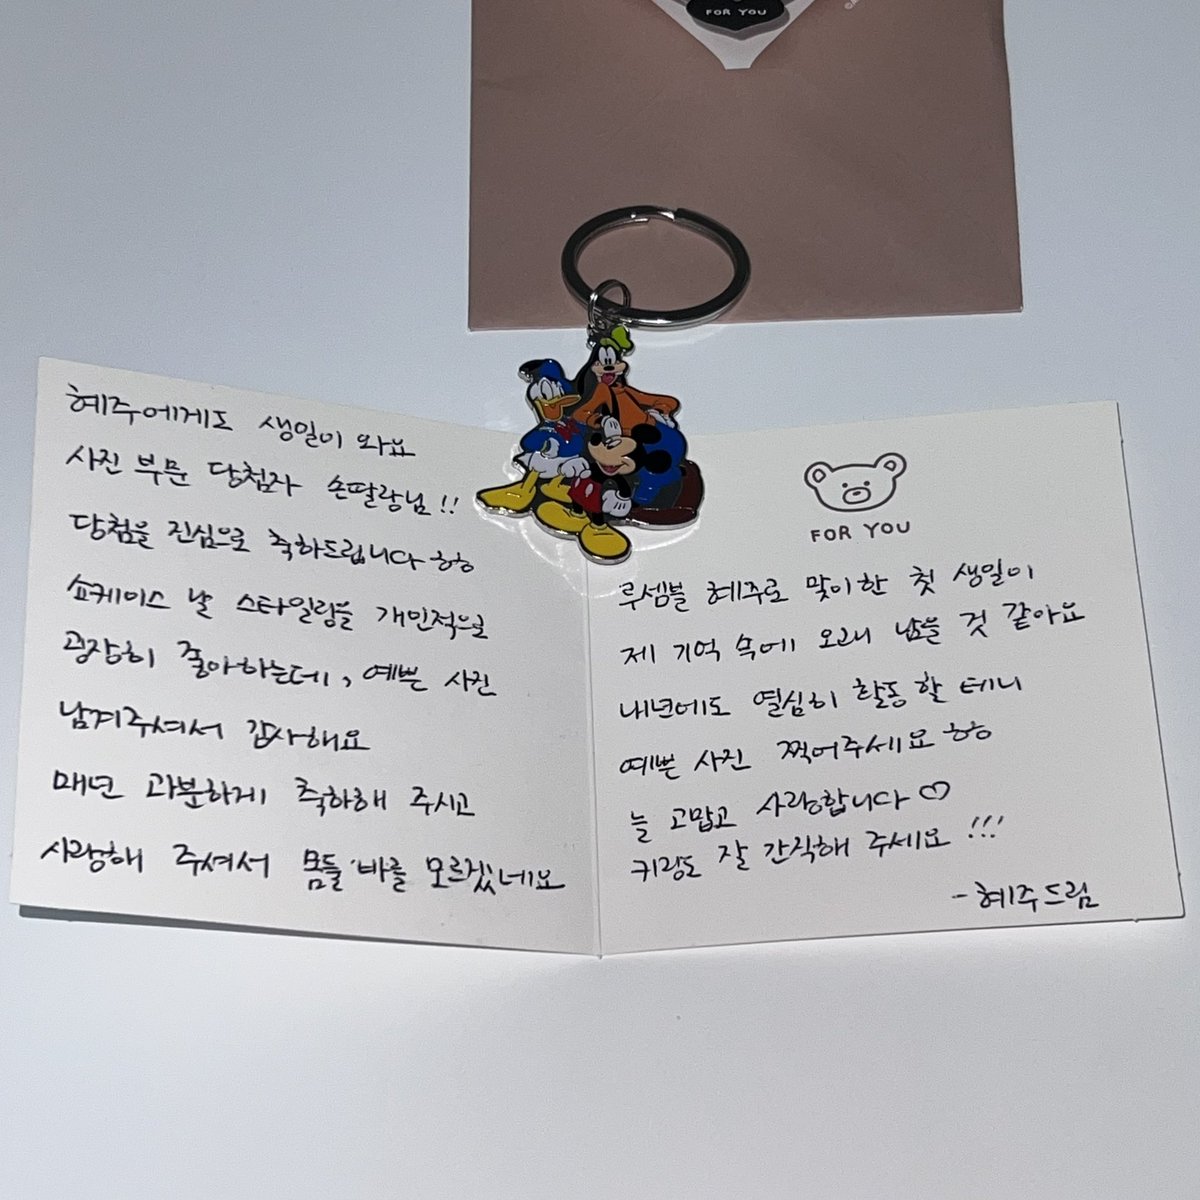 FOR YOU
혜주에게도 생일이 와요
사진 부문 당첨자 손딸랑님!!
당첨을 진심으로 축하드립니다 ㅎㅎ
쇼케이스 날 스타일링을 개인적으로
굉장히 좋아하는데, 예쁜 사진
남겨주셔서 감사해요
매년 과분하게 축하해 주시고
사랑해 주셔서 몸둘 바를 모르겠네요
FOR YOU
루셈블 혜주로 맞이한 첫 생일이
제 기억 속에 오래 남을 것 같아요
내년에도 열심히 활동할 테니
예쁜 사진 찍어주세요 ㅎㅎ
늘 고맙고 사랑합니다 ♡
키링도 잘 간직해 주세요!!!
- 혜주드림